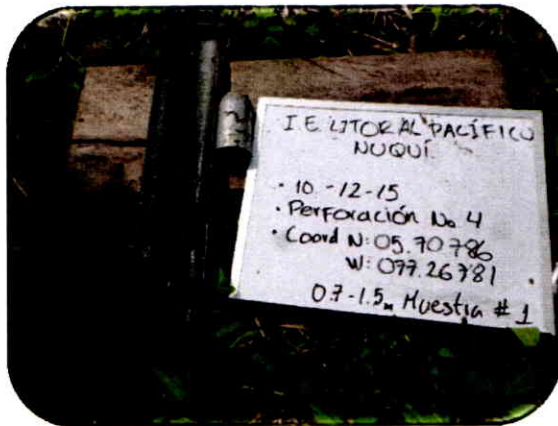 I.E. LITORAL PACÍFICO
NUQUÍ
· 10-12-15
· Perforación No 4
· Coord N: 05.70786
W: 077.26781
0.7-1.5m Muestra # 1